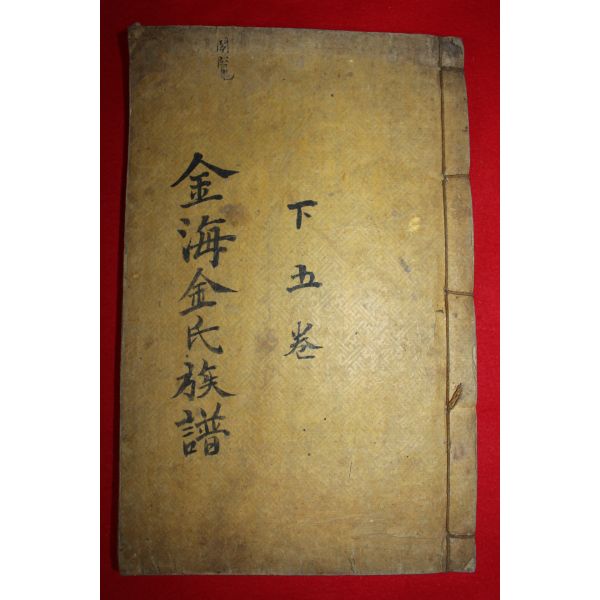 下五卷
金海金氏族譜